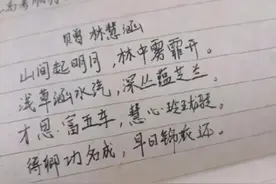 赠林慧涵
山间起明月，林中雾霏开。
浅草涵水汽，深丛蕴芝兰。
才思富五车，慧心
待卿功名成，早日锦衣还。